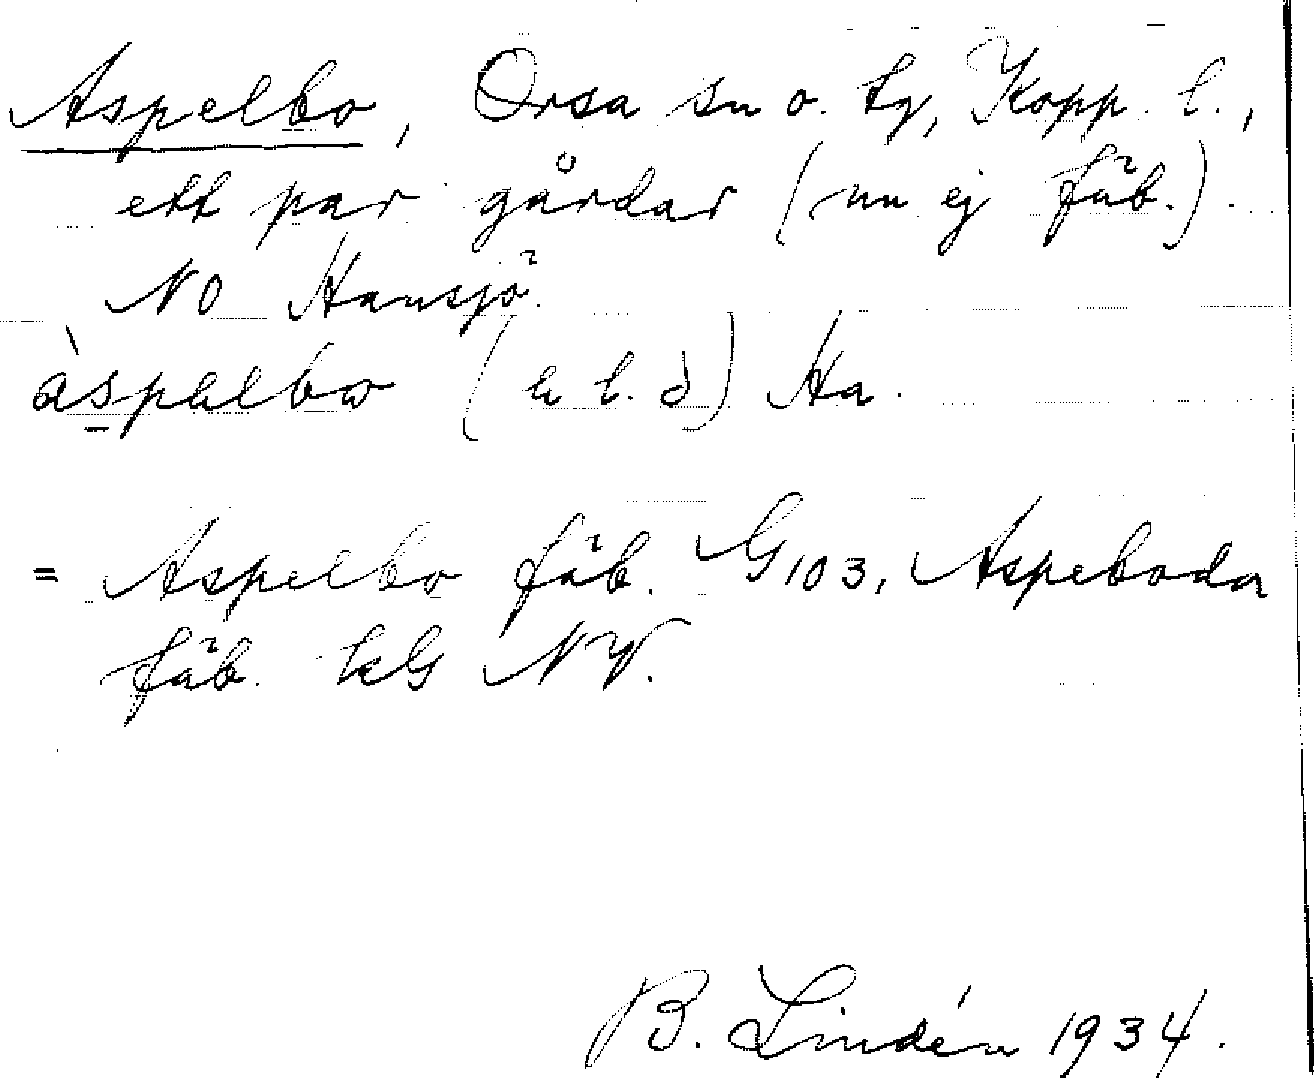 Aspelbo, Orsa sn o. tg, Kopp. l.,
ett par gårdar (nu ej fäb.).
NO Hansjö.
àspelbω (h l. d) Ha.
= Aspelbo fäb. G 103, Aspeboda
fäb. kG NV.
B. Lindén 1934.